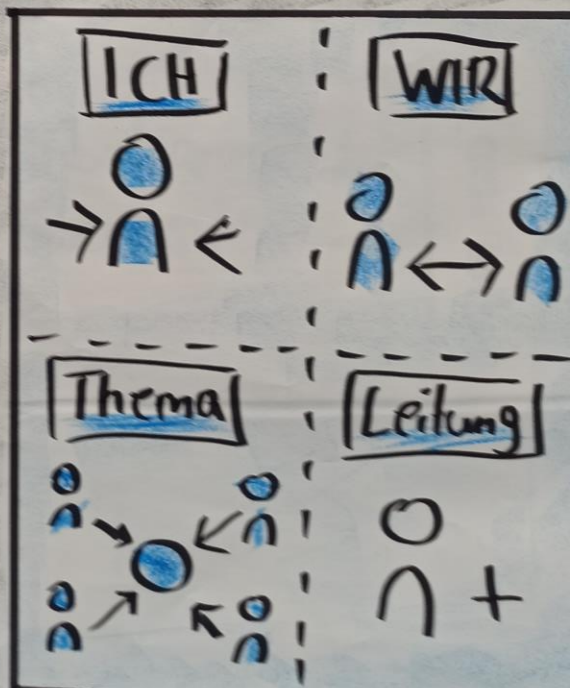 ICH
WIR
Thema
Leitung
+